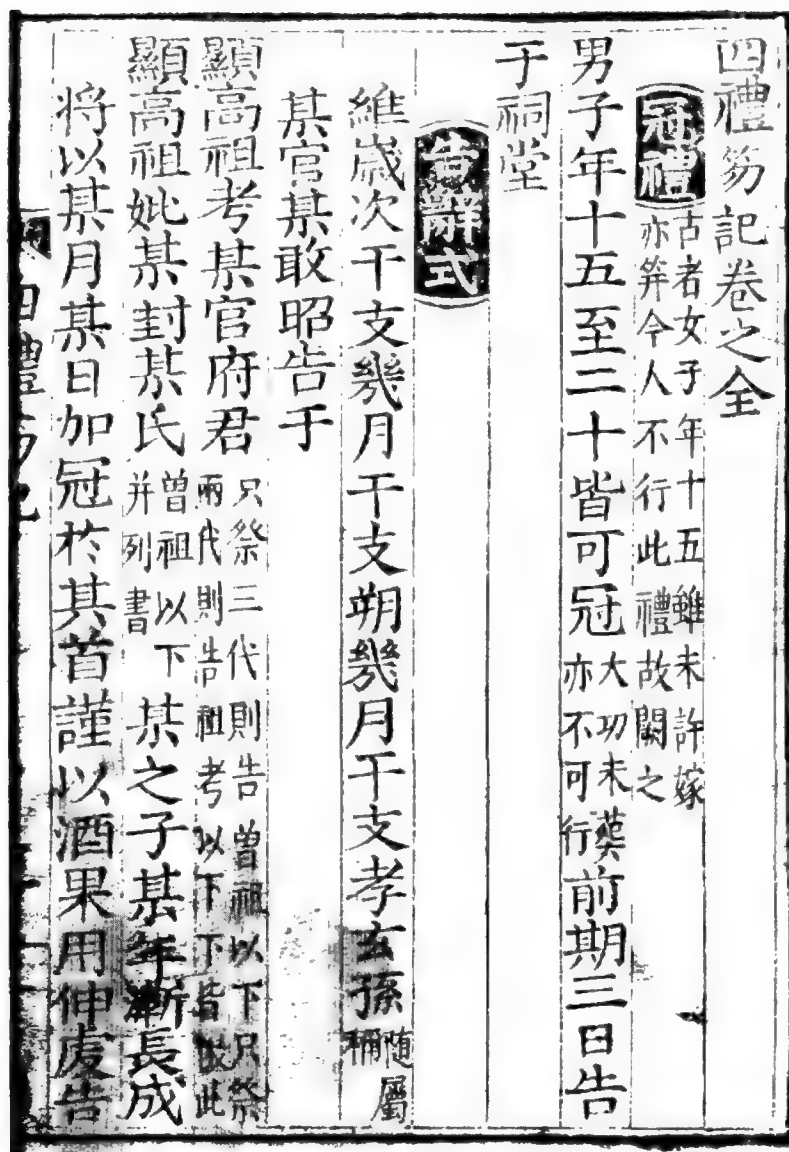 四禮笏記卷之全
冠禮 古者女子年十五雖未許嫁亦筓今人不行此禮故闕之
男子年十五至二十皆可冠 大功未葬亦不可行 前期三日告
于祠堂
告辭式
維歲次干支幾月干支朔幾月干支孝玄孫 随屬稱
某官某敢昭告于
顯高祖考某官府君 只祭三代則告曾祖以下只祭兩代則告祖考以下下皆倣此
顯高祖妣某封某氏 曾祖以下并列書 某之子某年漸長成
將以某月某日加冠於其首謹以酒果用伸虔告
四禮笏記